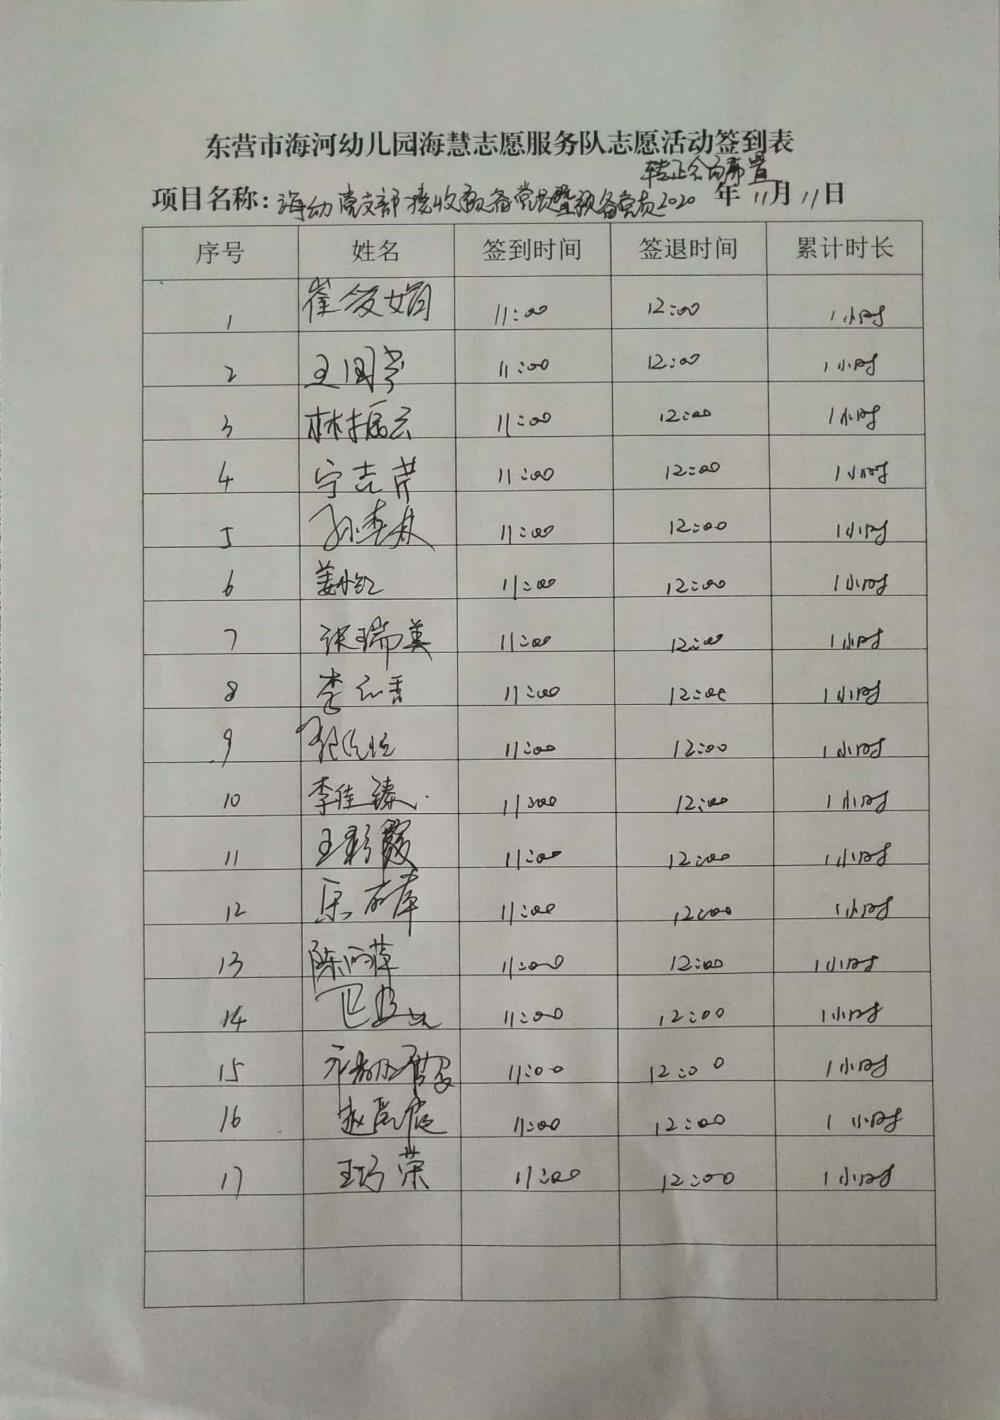 东营市海河幼儿园海慧志愿服务队志愿活动签到表
转正会的布置
项目名称:海幼党支部接收预备党员暨预备党员2020 年11月11日
序号 姓名 签到时间 签退时间 累计时长
1 崔爱娟 11:00 12:00 1小时
2 王国学 11:00 12:00 1小时
3 林振云 11:00 12:00 1小时
4 宁吉芹 11:00 12:00 1小时
5 11:00 12:00 1小时
6 姜小红 11:00 12:00 1小时
7 张瑞英 11:00 12:00 1小时
8 李 香 11:00 12:00 1小时
9 11:00 12:00 1小时
10 李佳臻 11:00 12:00 1小时
11 王彩霞 11:00 12:00 1小时
12 11:00 12:00 1小时
13 陈 萍 11:00 12:00 1小时
14 11:00 12:00 1小时
15 11:00 12:00 1小时
16 赵 霞 11:00 12:00 1小时
17 王巧荣 11:00 12:00 1小时